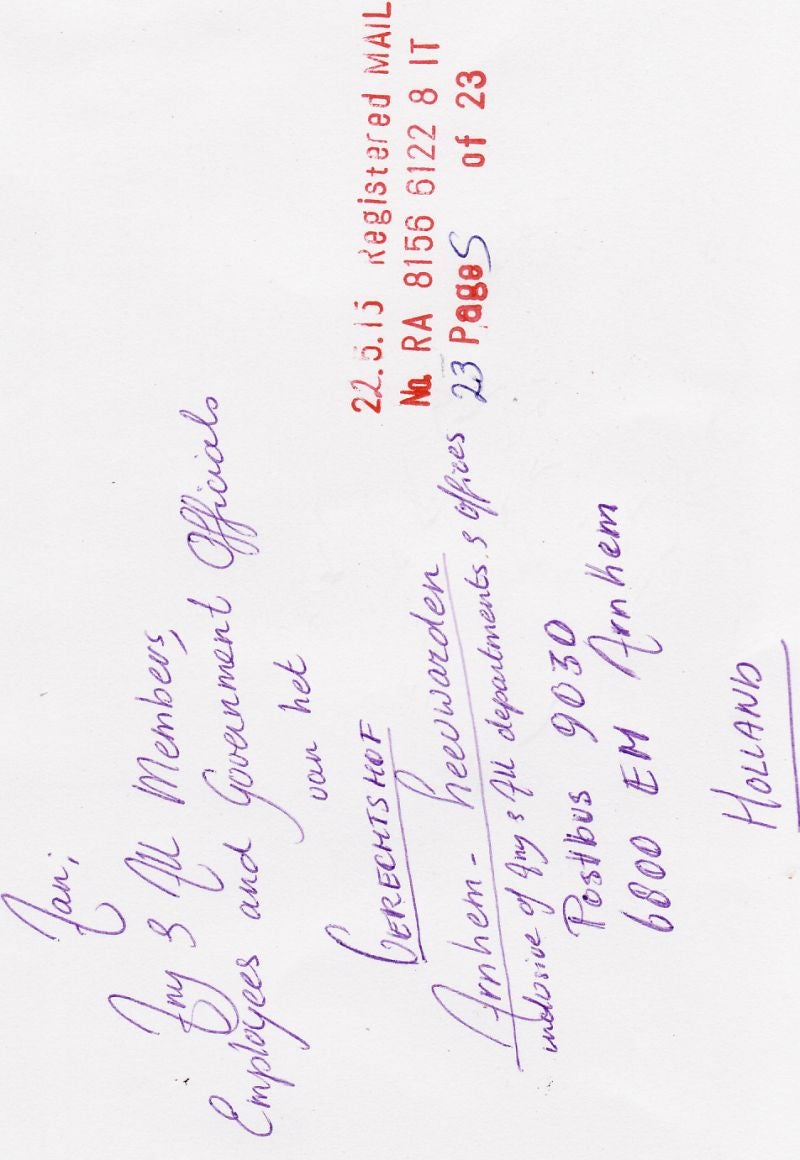 Aan;
Any & All Members,
Employees and Government Officials
van het
GERECHTSHOF
Arnhem - Leeuwarden
inclusive of Any & All departments & offices
Postbus 9030
6800 EM Arnhem
HOLLAND
22.5.15 Registered MAIL
No. RA 8156 6122 8 IT
23 Pages of 23